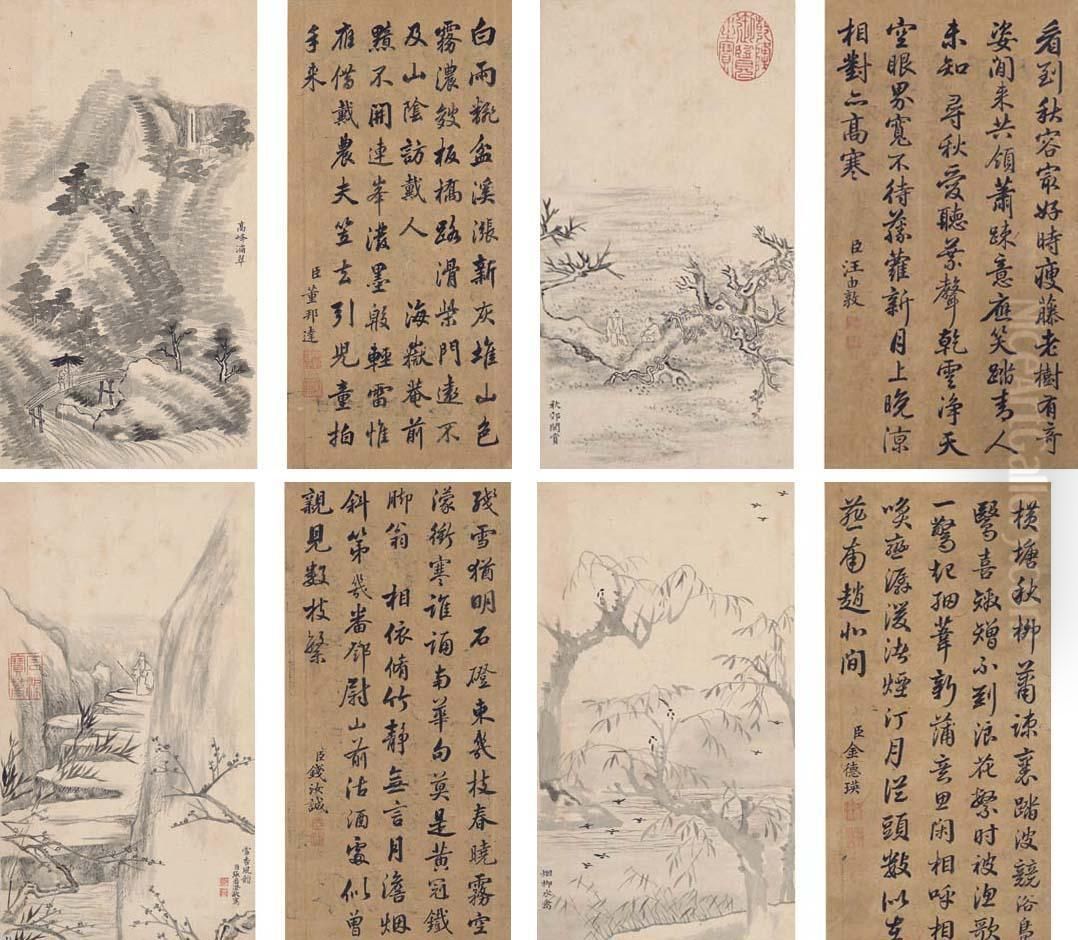 高峰滴翠
白雨翻盆溪漲新灰堆山色
霧濃皴板橋路滑柴門遠不
及山陰訪戴人 海嶽菴前
黯不開連峯潑墨殷輕雷惟
應借戴農夫笠去引児童拍
手来
臣董邦達
乾隆御覽之寶
秋郊閒賞
看到秋容最好時瘦藤老樹有奇
姿閒来共領蕭疎意應笑踏青人
未知 尋秋愛聽葉聲乾雲淨天
空眼界寬不待藤蘿新月上晚涼
相對亦高寒
臣汪由敦
殘雪猶明石磴東幾枝春曉霧空
濛衝寒誰誦南華句莫是黃冠鐵
脚翁 相依脩竹靜無言月澹烟
斜第幾番鄧尉山前沽酒處似曾
親見数枝繁
臣錢汝誠
烟柳水禽
橫塘秋柳葉疎 踏波競浴鳥
鷖喜 不到浪花繁时被漁歌
一驚起 細葦新蒲意思闲相呼相
喚 煙汀月 從頭數似在
燕南趙北間
臣金德瑛